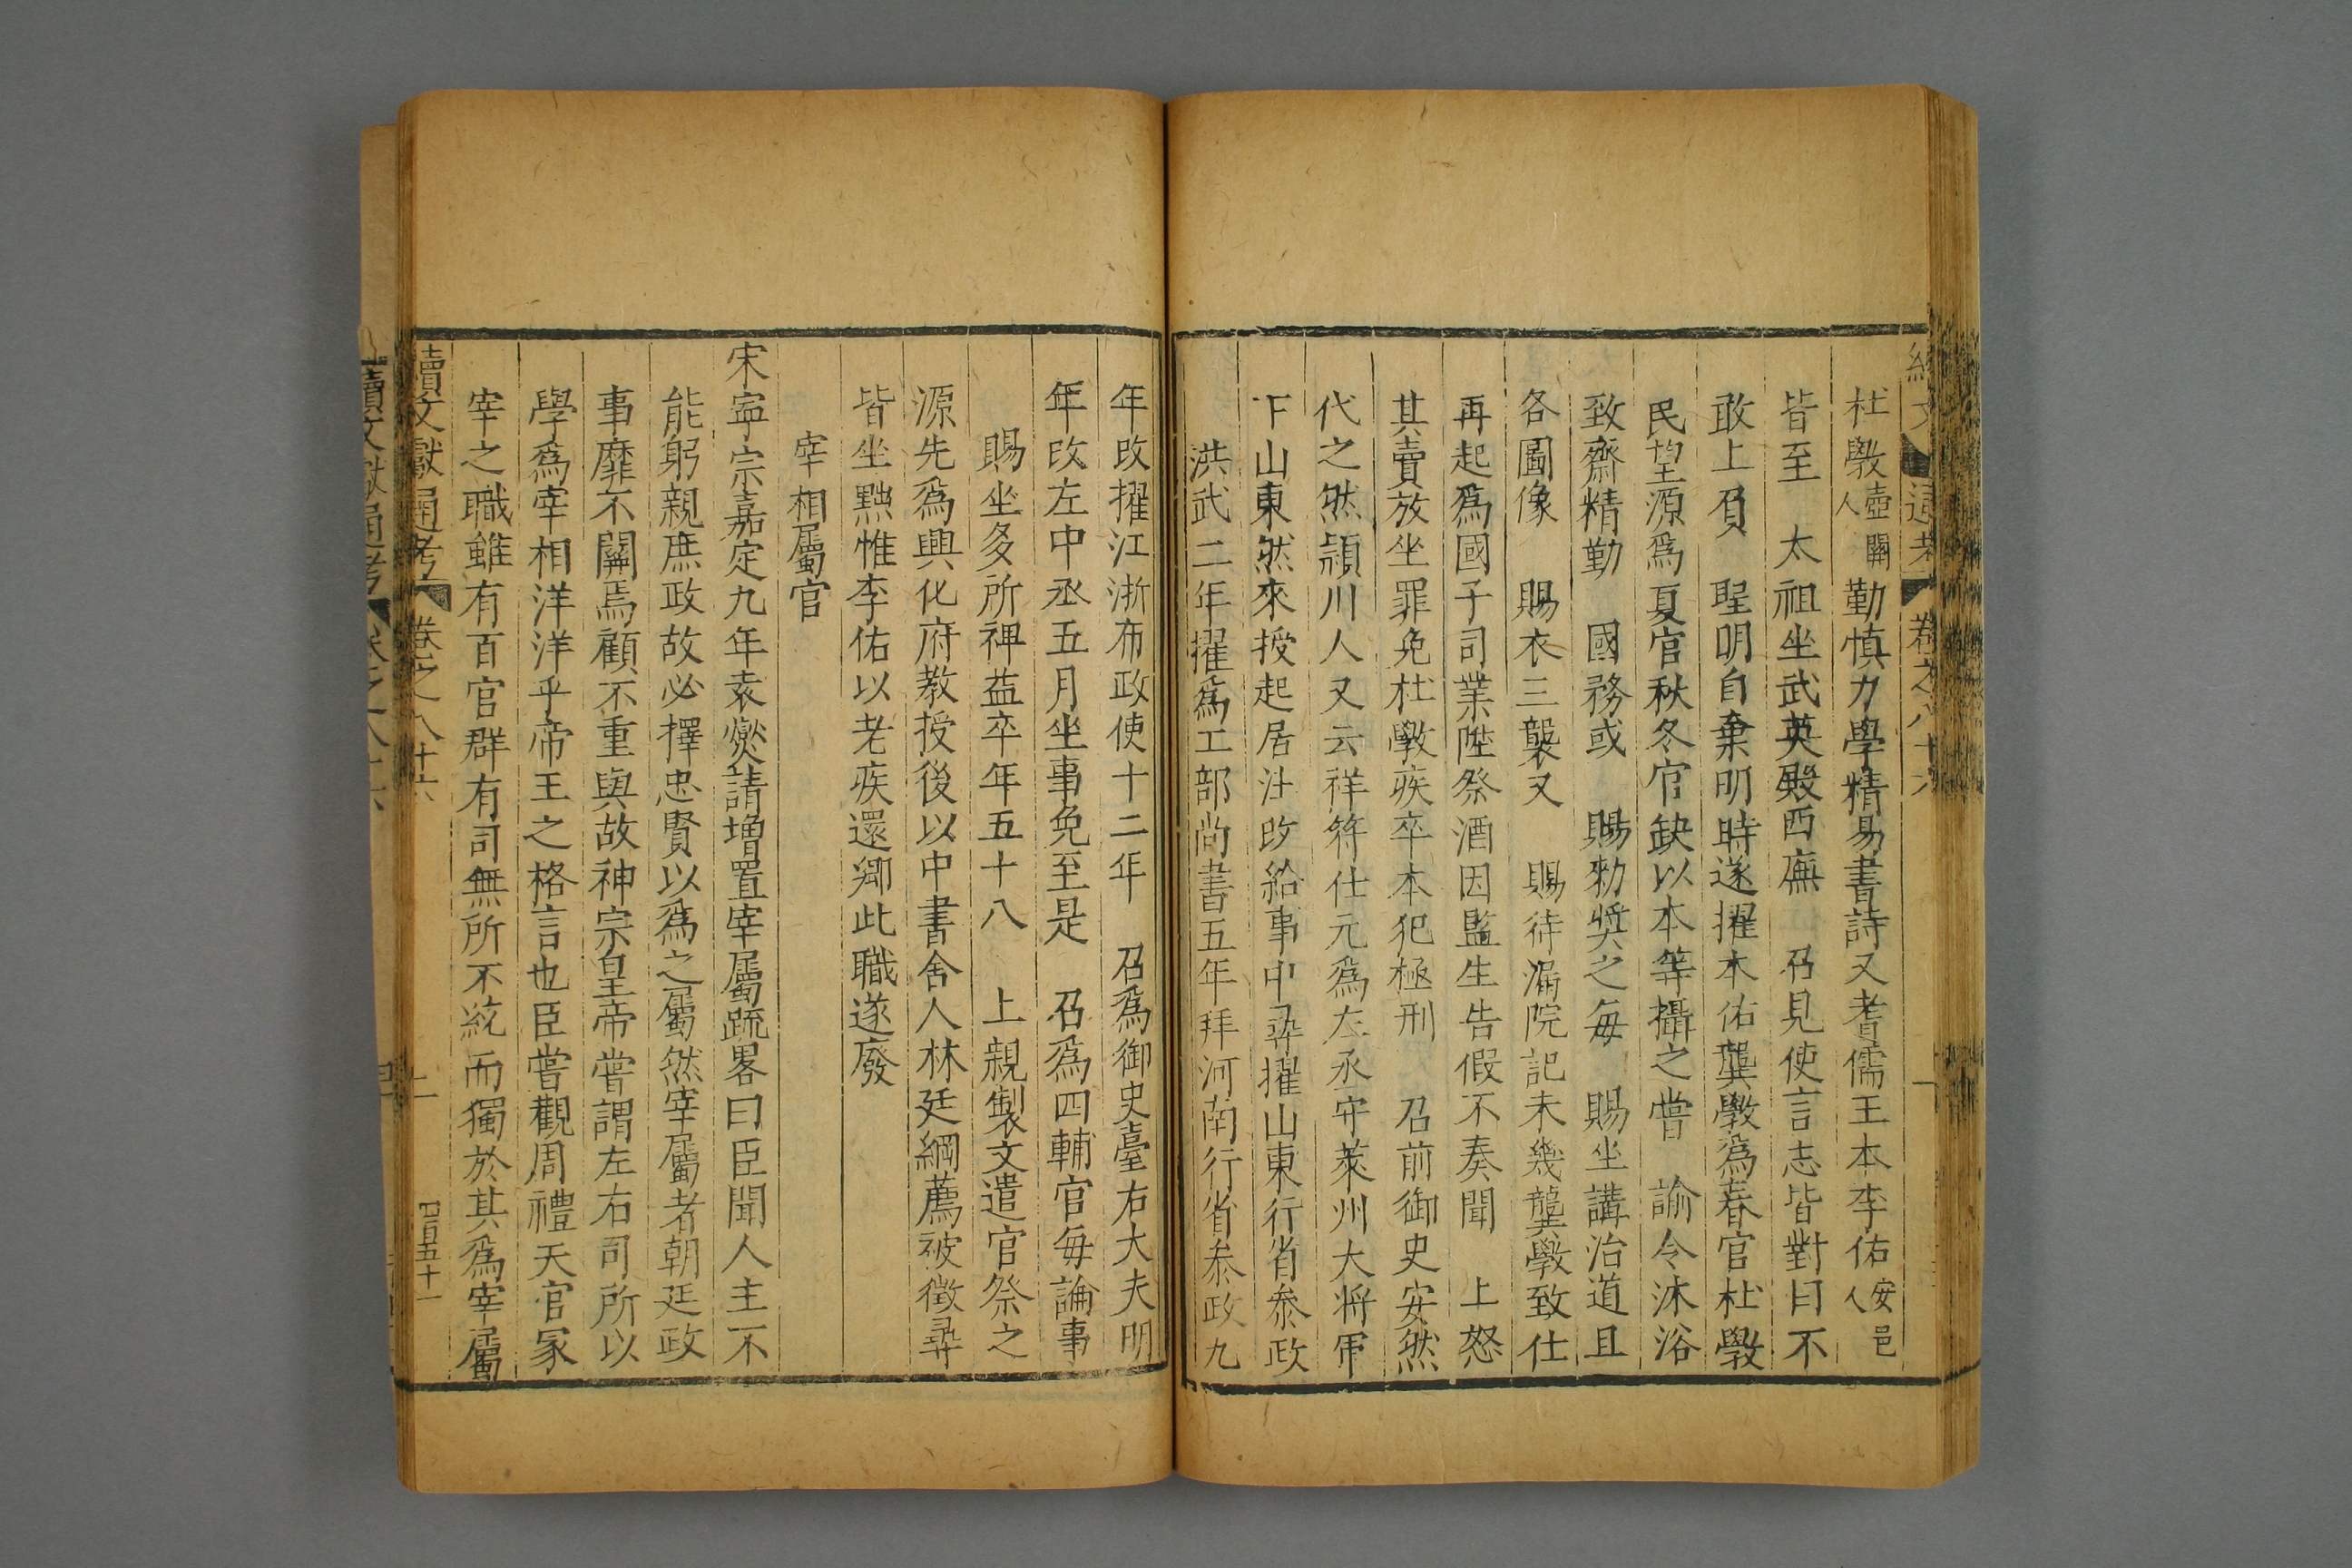 杜斆壺關人勤慎力學精易書詩又耆儒王本李佑安邑人
皆至　太祖坐武英殿西廡　召見使言志皆對曰不
敢上負　聖明自棄明時遂擢本佑龔斆爲春官杜斆
民望源爲夏官秋冬官缺以本等攝之嘗　諭令沐浴
致齋精勤　國務或　賜勑奬之每　賜坐講治道且
各圖像　賜衣三襲又　賜待漏院記未幾龔斆致仕
再起爲國子司業陞祭酒因監生告假不奏聞　上怒
其賣放坐罪免杜斆疾卒本犯極刑　召前御史安然
代之然頴川人又云祥符仕元爲左丞守萊州大將軍
下山東然來授起居注改給事中尋擢山東行省叅政
洪武二年擢爲工部尚書五年拜河南行省叅政九
年改擢江浙布政使十二年　召爲御史臺右大夫明
年改左中丞五月坐事免至是　召爲四輔官每論事
賜坐多所裨益卒年五十八　上親製文遣官祭之
源先爲興化府教授後以中書舍人林廷綱薦被徵尋
皆坐黜惟李佑以老疾還鄉此職遂廢
宰相屬官
宋寧宗嘉定九年袁燮請增置宰屬疏畧曰臣聞人主不
能躬親庶政故必擇忠賢以爲之屬然宰屬者朝廷政
事靡不關焉顧不重與故神宗皇帝嘗謂左右司所以
學爲宰相洋洋乎帝王之格言也臣嘗觀周禮天官冢
宰之職雖有百官群有司無所不統而獨於其爲宰屬
續文獻通考　卷之八十六　二